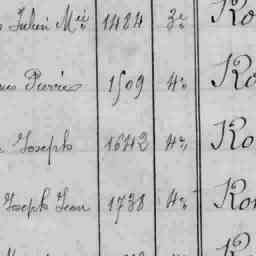 Julien Mie 1484 3e Ko
Pierre 1509 4e Ko
Joseph 1642 4e Ko
Joseph Jean 1738 4e Ko